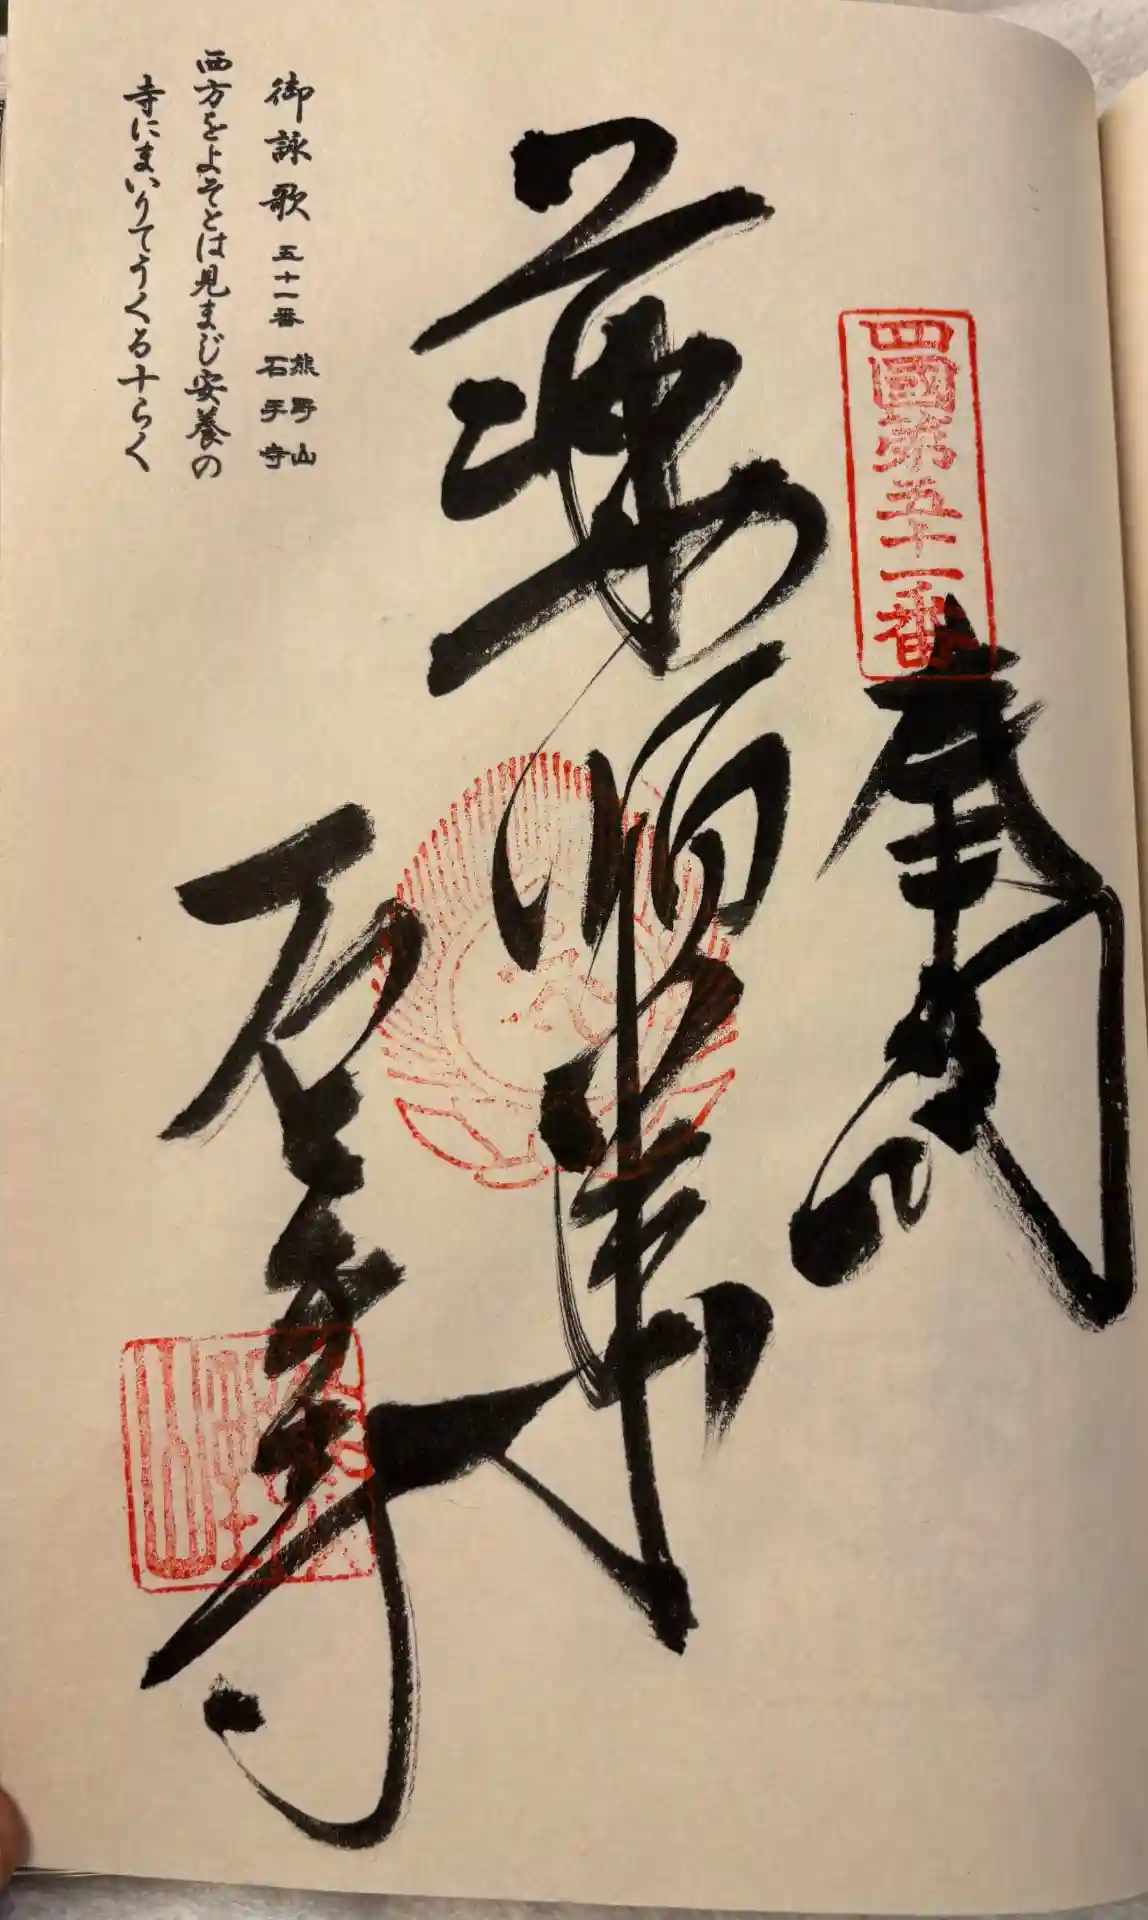 四國第五十一番
奉納
薬師如来
石手寺
熊野山
御詠歌 五十一番 熊野山 石手寺
西方をよそとは見まじ安養の
寺にまいりてうくる十らく